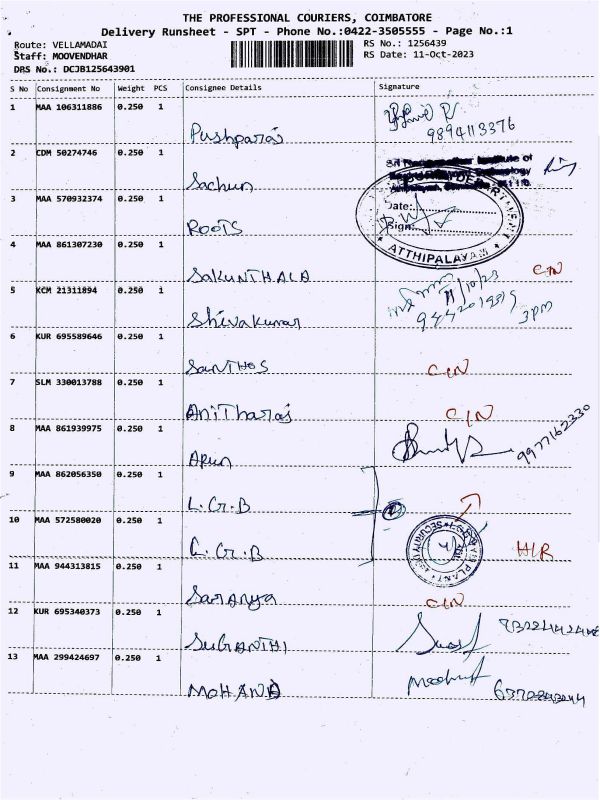 THE PROFESSIONAL COURIERS, COIMBATORE
Delivery Runsheet - SPT - Phone No.:0422-3505555 - Page No.:1
Route: VELLAMADAI
RS No.: 1256439
Staff: MOOVENDHAR
RS Date: 11-Oct-2023
DRS No.: DCJB125643901
S No Consignment No Weight PCS Consignee Details Signature
1 MAA 106311886 0.250 1
Pushparaj 9894113376
2 CDM 50274746 0.250 1
Sachun
Institute of
3 MAA 570932374 0.250 1
ROOTS
Date:
Sign:
ATTHIPALAYAM
4 MAA 861307230 0.250 1
SAKUNTHALA C/N
5 KCM 21311894 0.250 1
Shivakumar
6 KUR 695589646 0.250 1
SANTHOS C/N
7 SLM 330013788 0.250 1
Anitharaj C/N
8 MAA 861939975 0.250 1
Arun 9977162330
9 MAA 862056350 0.250 1
L.G.B
10 MAA 572580020 0.250 1
L.G.B H/R
PLANT
SECURITY
11 MAA 944313815 0.250 1
Saranya C/N
12 KUR 695340373 0.250 1
SUGANTHI
13 MAA 299424697 0.250 1
MOHAN